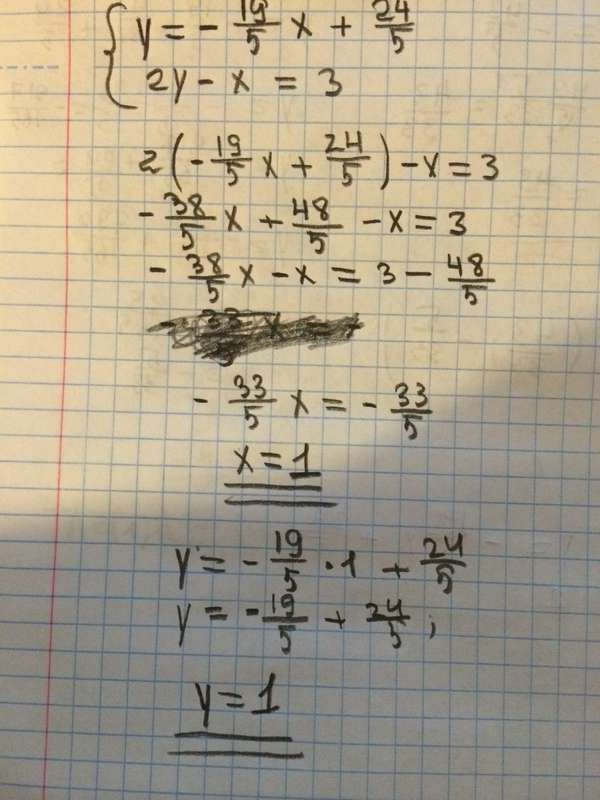 y = - 19/5 x + 24/5
2y - x = 3
2(- 19/5 x + 24/5) - x = 3
- 38/5 x + 48/5 - x = 3
- 38/5 x - x = 3 - 48/5
- 33/5 x = - 33/5
x = 1
y = - 19/5 · 1 + 24/5
y = - 19/5 + 24/5;
y = 1